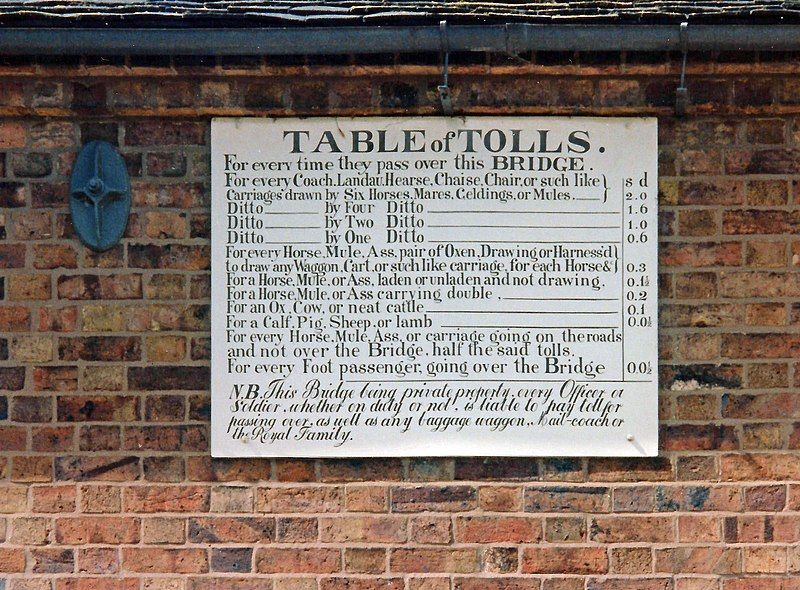 TABLE of TOLLS.
For every time they pass over this BRIDGE.
For every Coach, Landau, Hearse, Chaise, Chair, or such like } s d
Carriages drawn by Six Horses, Mares, Geldings, or Mules. 2.0
Ditto by Four Ditto 1.6
Ditto by Two Ditto 1.0
Ditto by One Ditto 0.6
For every Horse, Mule, Ass, pair of Oxen, Drawing or Harness'd }
to draw any Waggon, Cart, or such like carriage, for each Horse & 0.3
For a Horse, Mule, or Ass, laden or unladen and not drawing, 0.1½
For a Horse, Mule, or Ass carrying double, 0.2
For an Ox, Cow, or neat cattle 0.1
For a Calf, Pig, Sheep, or lamb 0.0½
For every Horse, Mule, Ass, or carriage going on the roads
and not over the Bridge, half the said tolls.
For every Foot passenger, going over the Bridge 0.0½
N.B. This Bridge being private property, every Officer or
Soldier, whether on duty or not, is liable to pay toll for
passing over, as well as any baggage waggon, Mail-coach or
the Royal Family.